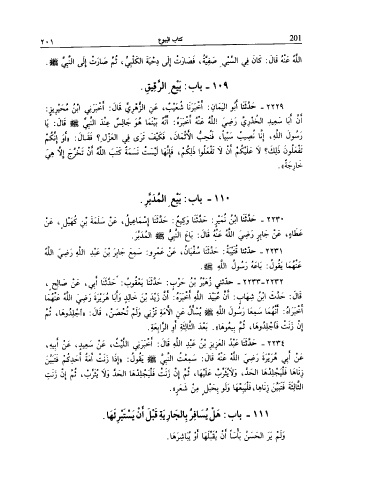 201 كتاب البيوع ٢٠١
اللهُ عَنْهُ قَالَ: كَانَ فِي السَّبْيِ صَفِيَّةُ، فَصَارَتْ إِلَى دِحْيَةَ الكَلْبِيِّ، ثُمَّ صَارَتْ إِلَى النَّبِيِّ ﷺ.
١٠٩ - باب: بَيْعِ الرَّقِيقِ.
٢٢٢٩ - حَدَّثَنَا أَبُو اليَمَانِ: أَخْبَرَنَا شُعَيْبٌ، عَنِ الزُّهْرِيِّ قَالَ: أَخْبَرَنِي ابْنُ مُحَيْرِيزٍ:
أَنَّ أَبَا سَعِيدٍ الخُدْرِيَّ رَضِيَ اللهُ عَنْهُ أَخْبَرَهُ: أَنَّهُ بَيْنَمَا هُوَ جَالِسٌ عِنْدَ النَّبِيِّ ﷺ قَالَ: يَا
رَسُولَ اللهِ، إِنَّا نُصِيبُ سَبْياً، فَنُحِبُّ الأَثْمَانَ، فَكَيْفَ تَرَى فِي العَزْلِ؟ فَقَالَ: «أَوَ إِنَّكُمْ
تَفْعَلُونَ ذَلِكَ؟ لَا عَلَيْكُمْ أَنْ لَا تَفْعَلُوا ذَلِكُمْ، فَإِنَّهَا لَيْسَتْ نَسَمَةٌ كَتَبَ اللهُ أَنْ تَخْرُجَ إِلَّا هِيَ
خَارِجَةٌ».
١١٠ - باب: بَيْعِ المُدَبَّرِ.
٢٢٣٠ - حَدَّثَنَا ابْنُ نُمَيْرٍ: حَدَّثَنَا وَكِيعٌ: حَدَّثَنَا إِسْمَاعِيلُ، عَنْ سَلَمَةَ بْنِ كُهَيْلٍ، عَنْ
عَطَاءٍ، عَنْ جَابِرٍ رَضِيَ اللهُ عَنْهُ قَالَ: بَاعَ النَّبِيُّ ﷺ المُدَبَّرَ.
٢٢٣١ - حدّثنا قُتَيْبَةُ: حَدَّثَنَا سُفْيَانُ، عَنْ عَمْرٍو: سَمِعَ جَابِرَ بْنَ عَبْدِ اللهِ رَضِيَ اللهُ
عَنْهُمَا يَقُولُ: بَاعَهُ رَسُولُ اللهِ ﷺ.
٢٢٣٢-٢٢٣٣ - حدّثني زُهَيْرُ بْنُ حَرْبٍ: حَدَّثَنَا يَعْقُوبُ: حَدَّثَنَا أَبِي، عَنْ صَالِحٍ،
قَالَ: حَدَّثَ ابْنُ شِهَابٍ: أَنَّ عُبَيْدَ اللهِ أَخْبَرَهُ: أَنَّ زَيْدَ بْنَ خَالِدٍ وَأَبَا هُرَيْرَةَ رَضِيَ اللهُ عَنْهُمَا
أَخْبَرَاهُ: أَنَّهُمَا سَمِعَا رَسُولَ اللهِ ﷺ يُسْأَلُ عَنِ الأَمَةِ تَزْنِي وَلَمْ تُحْصَنْ، قَالَ: «اجْلِدُوهَا، ثُمَّ
إِنْ زَنَتْ فَاجْلِدُوهَا، ثُمَّ بِيعُوهَا». بَعْدَ الثَّالِثَةِ أَوِ الرَّابِعَةِ.
٢٢٣٤ - حَدَّثَنَا عَبْدُ العَزِيزِ بْنُ عَبْدِ اللهِ قَالَ: أَخْبَرَنِي اللَّيْثُ، عَنْ سَعِيدٍ، عَنْ أَبِيهِ،
عَنْ أَبِي هُرَيْرَةَ رَضِيَ اللهُ عَنْهُ قَالَ: سَمِعْتُ النَّبِيَّ ﷺ يَقُولُ: «إِذَا زَنَتْ أَمَةُ أَحَدِكُمْ فَتَبَيَّنَ
زِنَاهَا فَلْيَجْلِدْهَا الحَدَّ، وَلَا يُثَرِّبْ عَلَيْهَا، ثُمَّ إِنْ زَنَتْ فَلْيَجْلِدْهَا الحَدَّ وَلَا يُثَرِّبْ، ثُمَّ إِنْ زَنَتِ
الثَّالِثَةَ فَتَبَيَّنَ زِنَاهَا، فَلْيَبِعْهَا وَلَوْ بِحَبْلٍ مِنْ شَعَرٍ».
١١١ - باب: هَلْ يُسَافِرُ بِالجَارِيَةِ قَبْلَ أَنْ يَسْتَبْرِئَهَا.
وَلَمْ يَرَ الحَسَنُ بَأْساً أَنْ يُقَبِّلَهَا أَوْ يُبَاشِرَهَا.